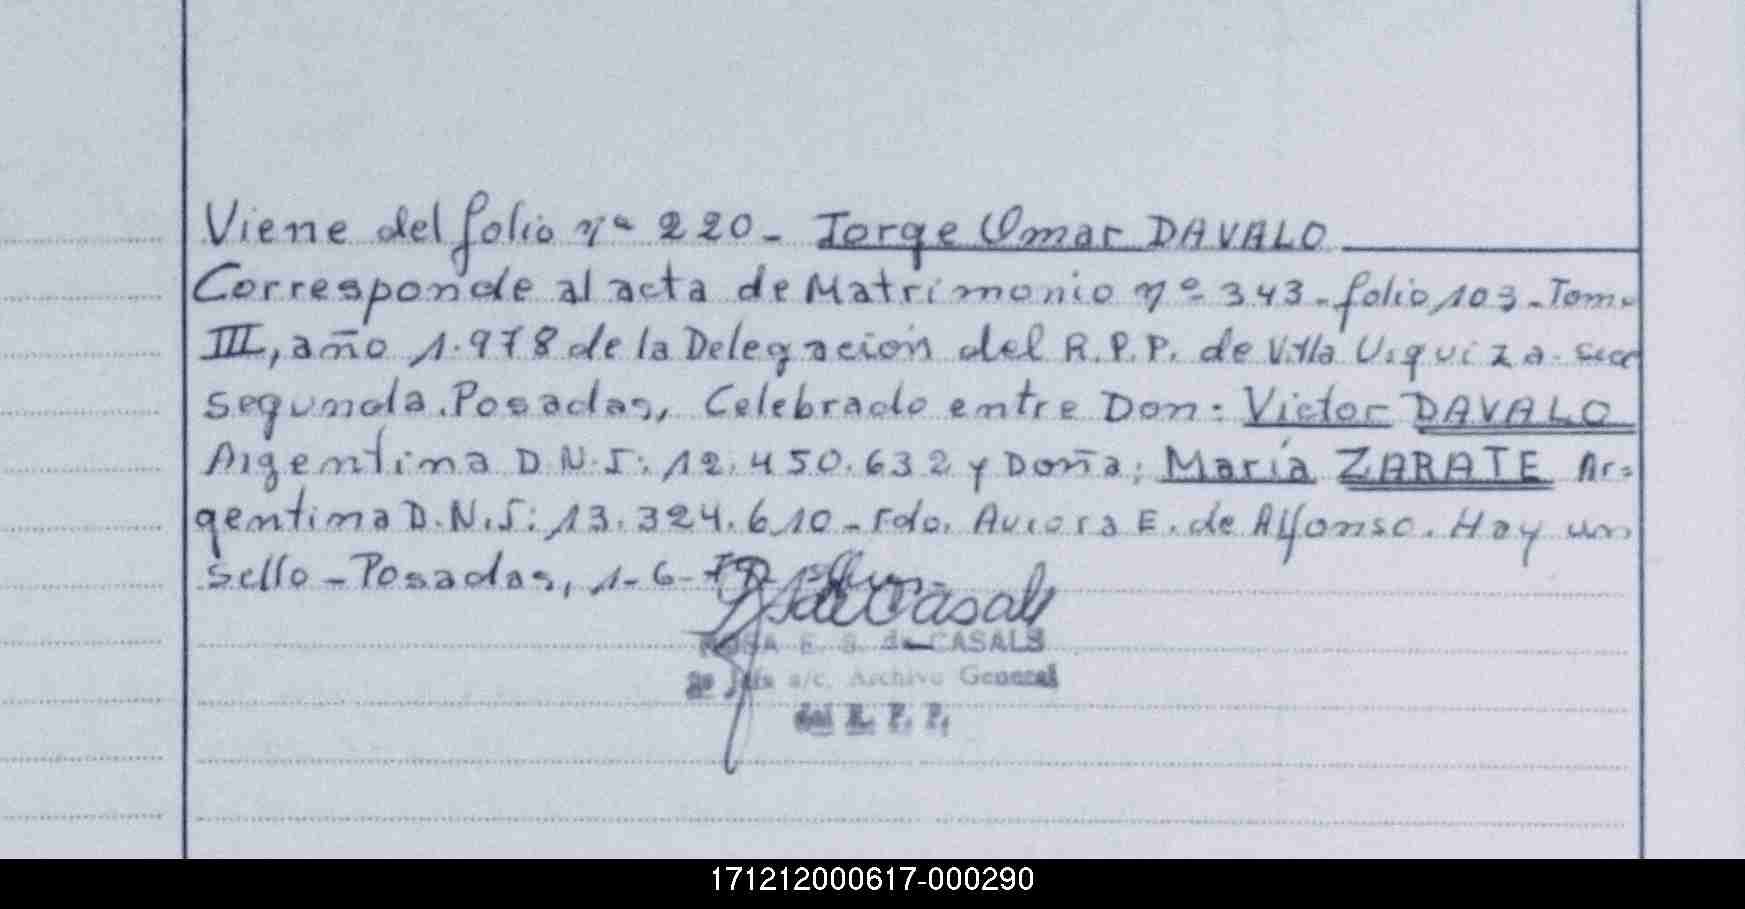 Viene del folio nº 220 - Jorge Omar DAVALO
Corresponde al acta de Matrimonio nº 343 - folio 103 - Tomo
III, año 1.978 de la Delegación del R.P.P. de Villa Urquiza
segunda. Posadas, Celebrado entre Don: Victor DAVALO
Argentina D.N.I: 12.450.632 y Doña: María ZARATE Ar=
gentina D.N.I: 13.324.610 - Fdo. Aurora E. de Alfonso. Hay un
sello - Posadas, 1-6-
de Casals
ROSA E. S. de CASALS
a/c. Archivo General
del R. P. P.
171212000617-000290